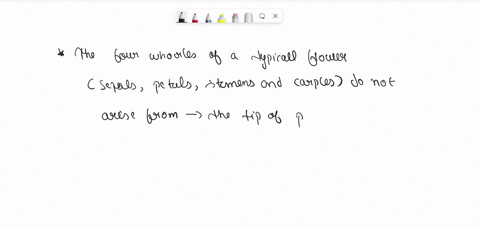 * The four whorles of a typicall flower
(sepals, petals, stemens and carples) do not
arese from → the tip of p